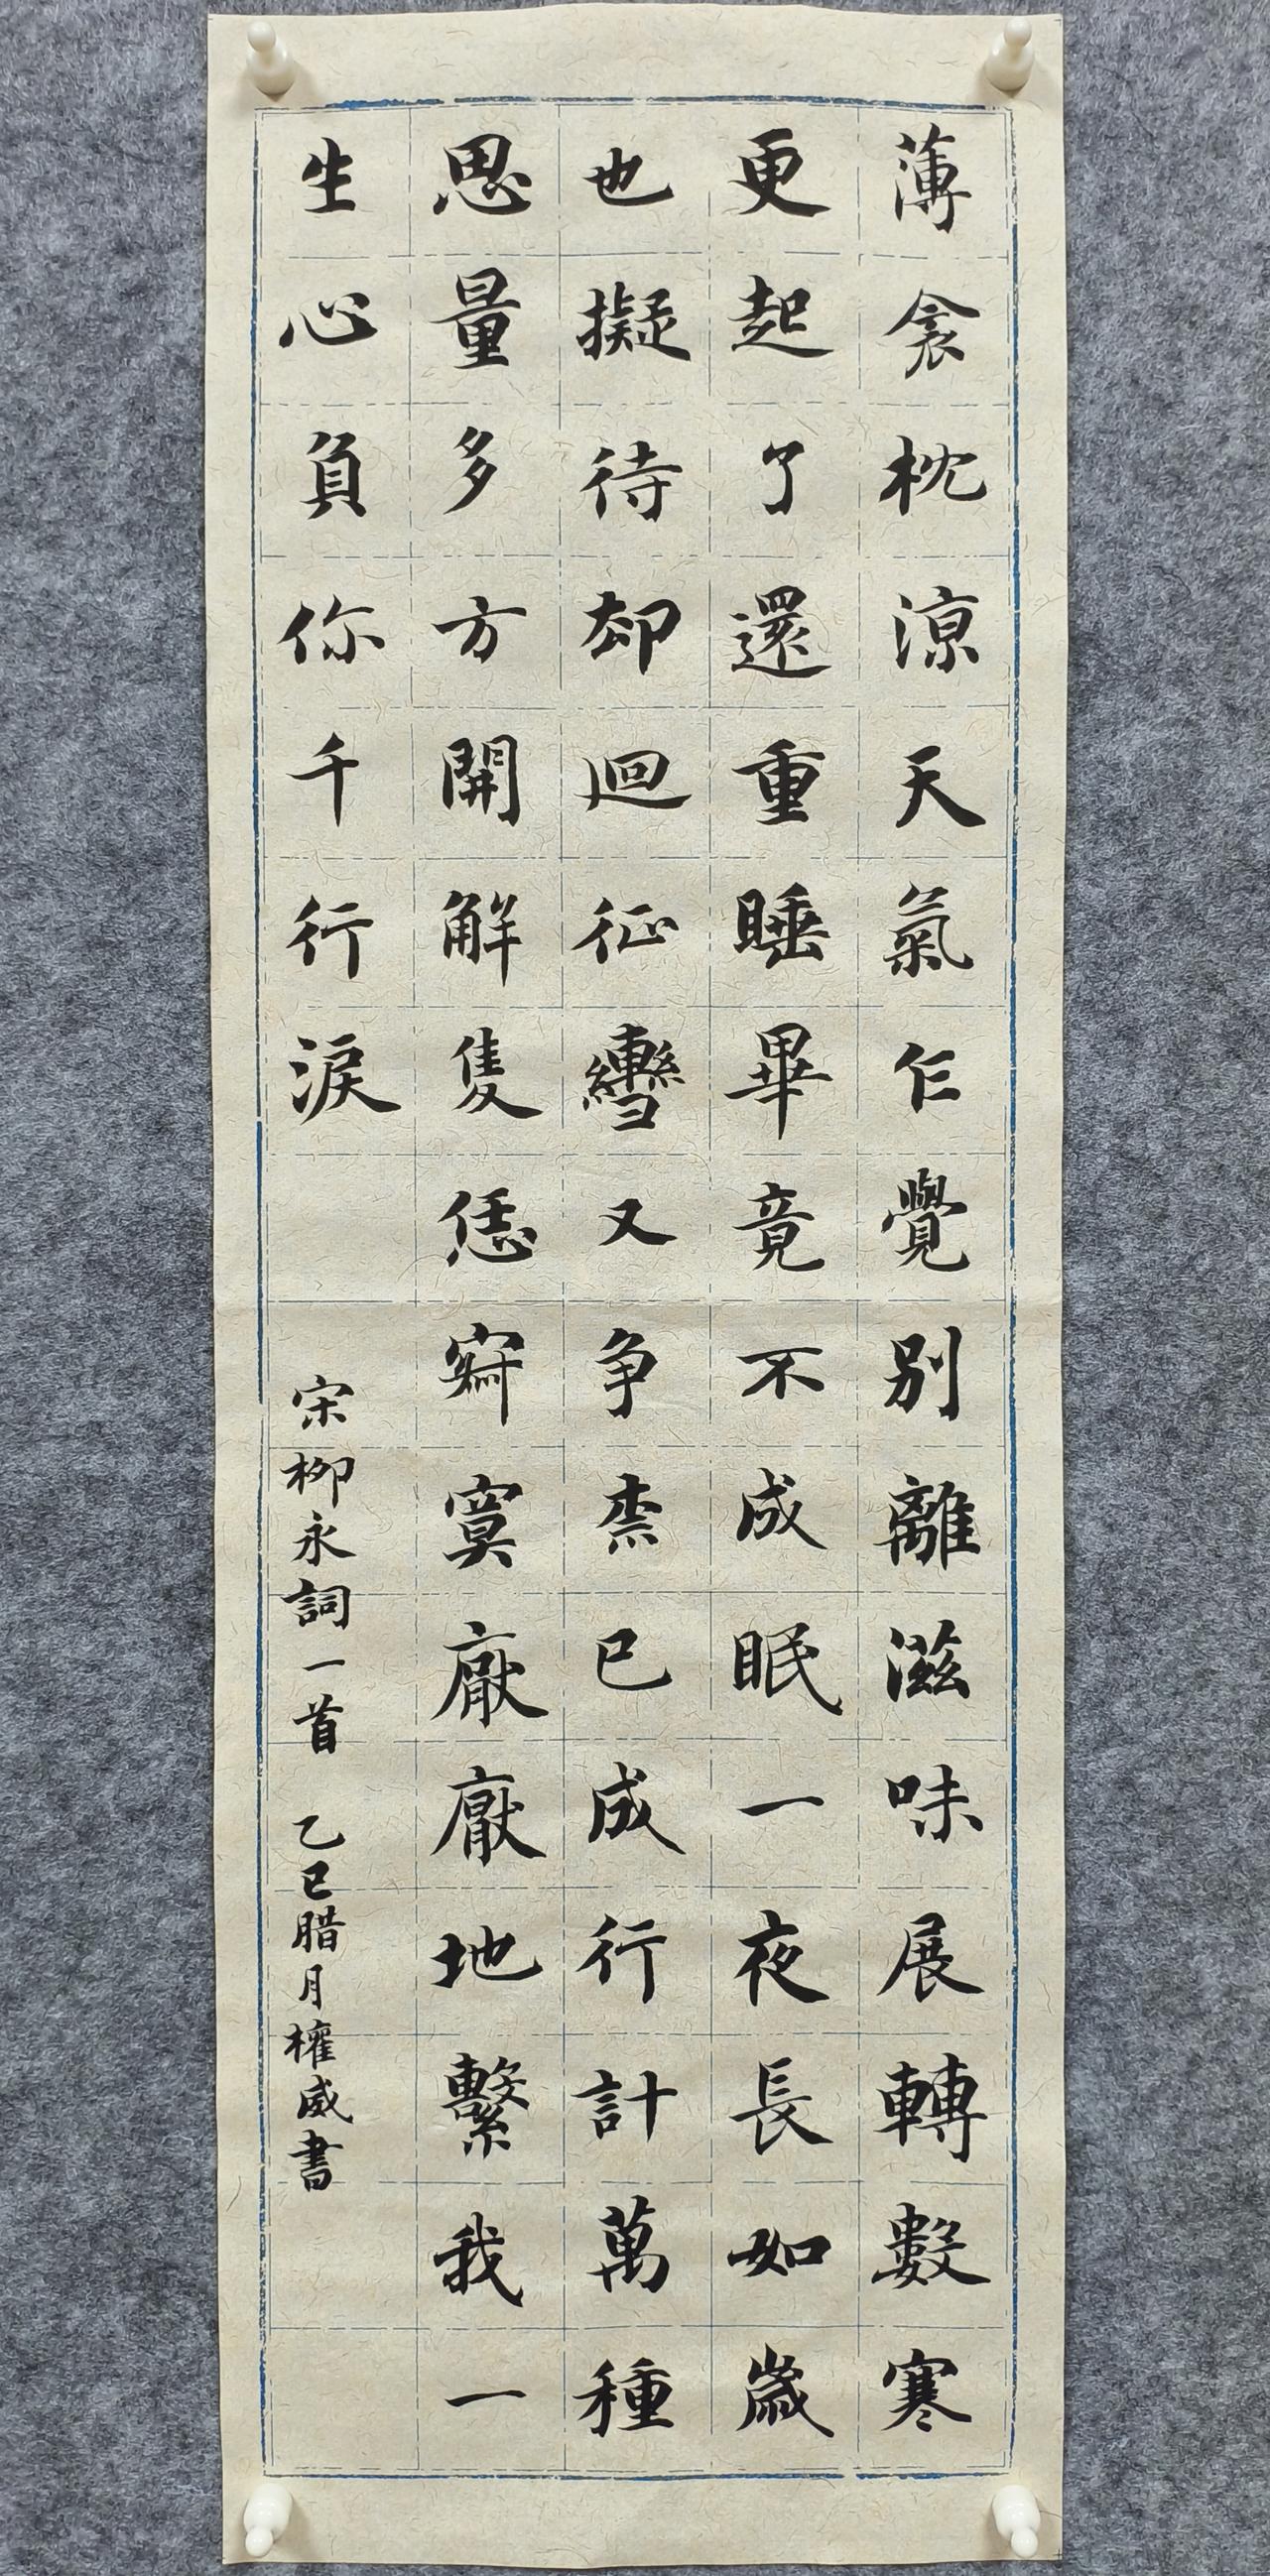 薄衾枕涼天氣乍覺別離滋味展轉數寒
更起了還重睡畢竟不成眠一夜長如歲
也擬待却迴征轡又争柰已成行計萬種
思量多方開解隻恁寂寞厭厭地繫我一
生心負你千行淚
宋柳永詞一首 乙巳腊月權威書